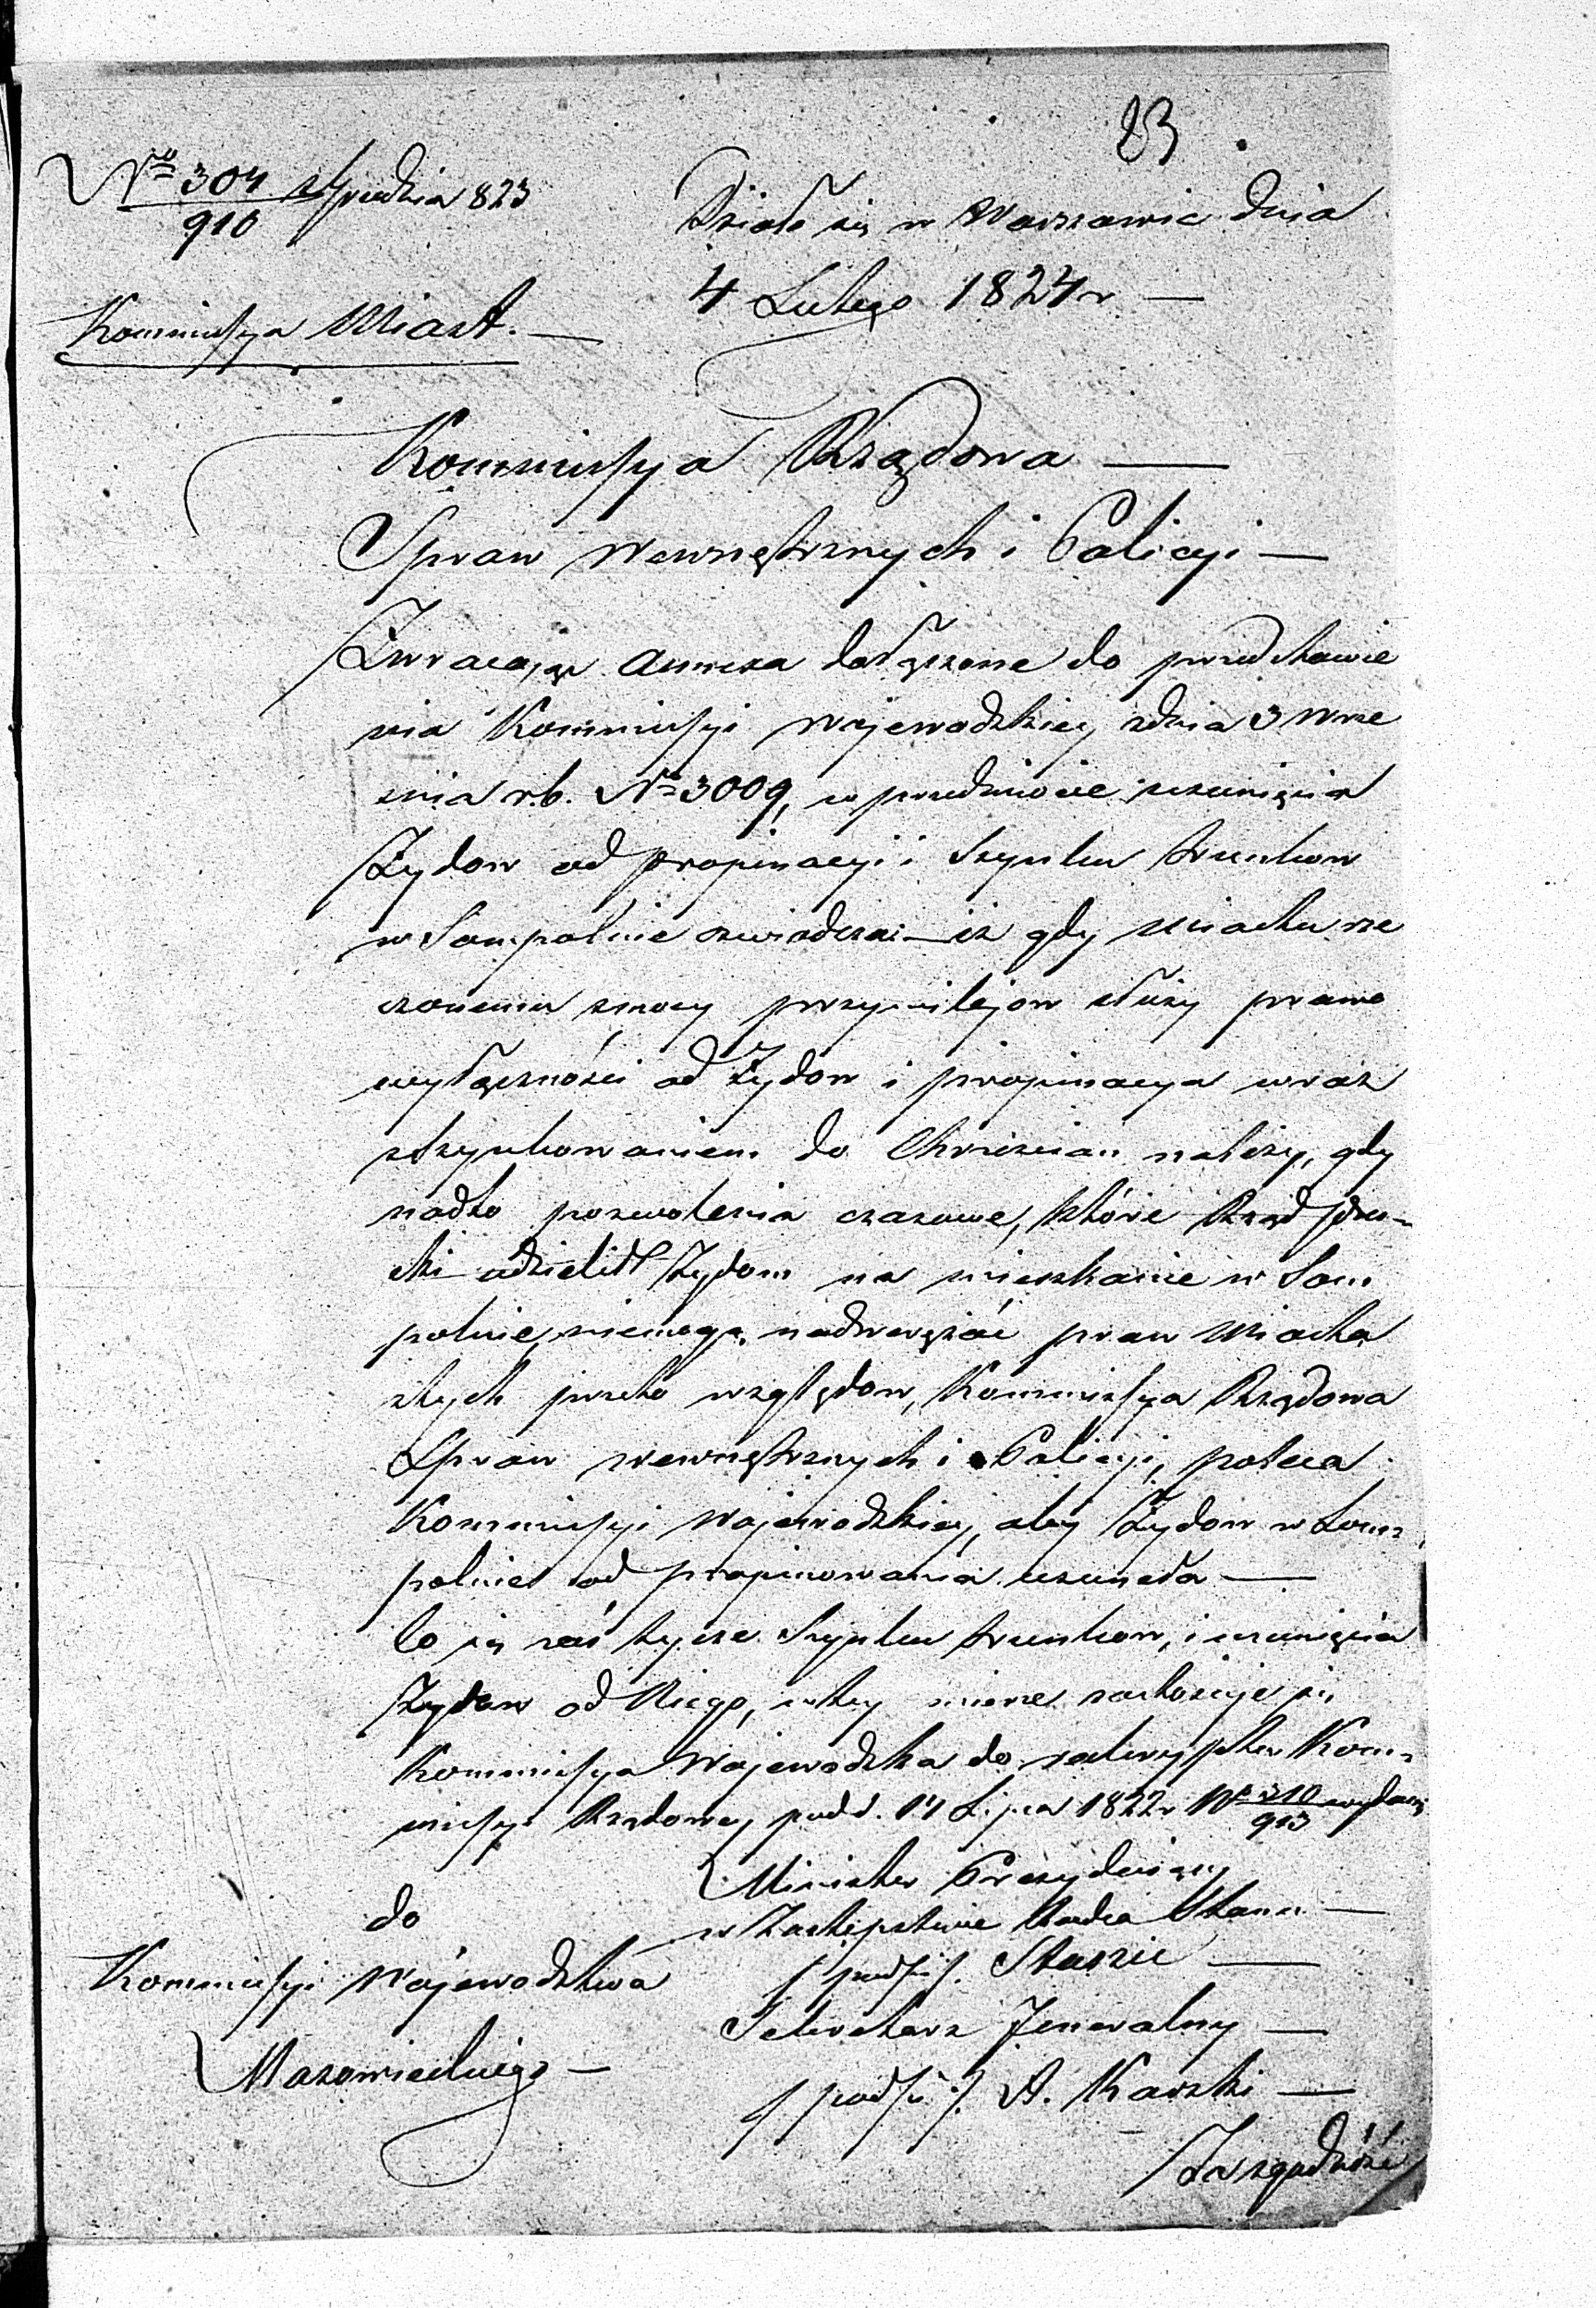 83
No 304/910 z Grudnia 823
Działo się w Warszawie dnia
4 Lutego 1824 r —
Kommissya Miast. —
Kommissya Rządowa —
Spraw Wewnętrznych i Policyi —
Zwracając annexa dołączone do przedstawie
nia Kommissyi Wojewodzkiey zdnia 3 Wrze
śnia r.b. No 3009, w przedmiocie usunięcia
Żydow od propinacyi i Szynku trunkow
w Sompolnie oświadcza — iż gdy Miastu rze
czonemu zmocy przywilejow służy prawo
wyłączności od Żydow i propinacya wraz
zszynkowaniem do Chrześcian należy, gdy
nadto pozwolenia czasowe, które Rząd pru-
ski udzielił Żydom na mieszkanie w Som
polnie, niemogą nadwerężać praw Miasta
ztych przeto względow, Kommissya Rządowa
Spraw wewnętrznych i Policyi, poleca
Kommissyi Wojewodzkiey, aby Żydow w Som-
polnie od propinowania usunęła —
Co się zaś tycze Szynku trunkow, i usunięcia
Żydow od Niego, wtey mierze zastosuje się
Kommissya Wojewodzka do reskryptu Kom-
missyi Rządowey pod d. 14 Lipca 1822 r No 310/913 wydanego
Minister Prezyduiący
w Zastępstwie Radca Stanu —
/ podpis /. Staszic —
Sekretarz Jeneralny —
/ podpis /. A. Karski —
do
Kommissyi Wojewodztwa
Mazowieckiego —
Za zgodność